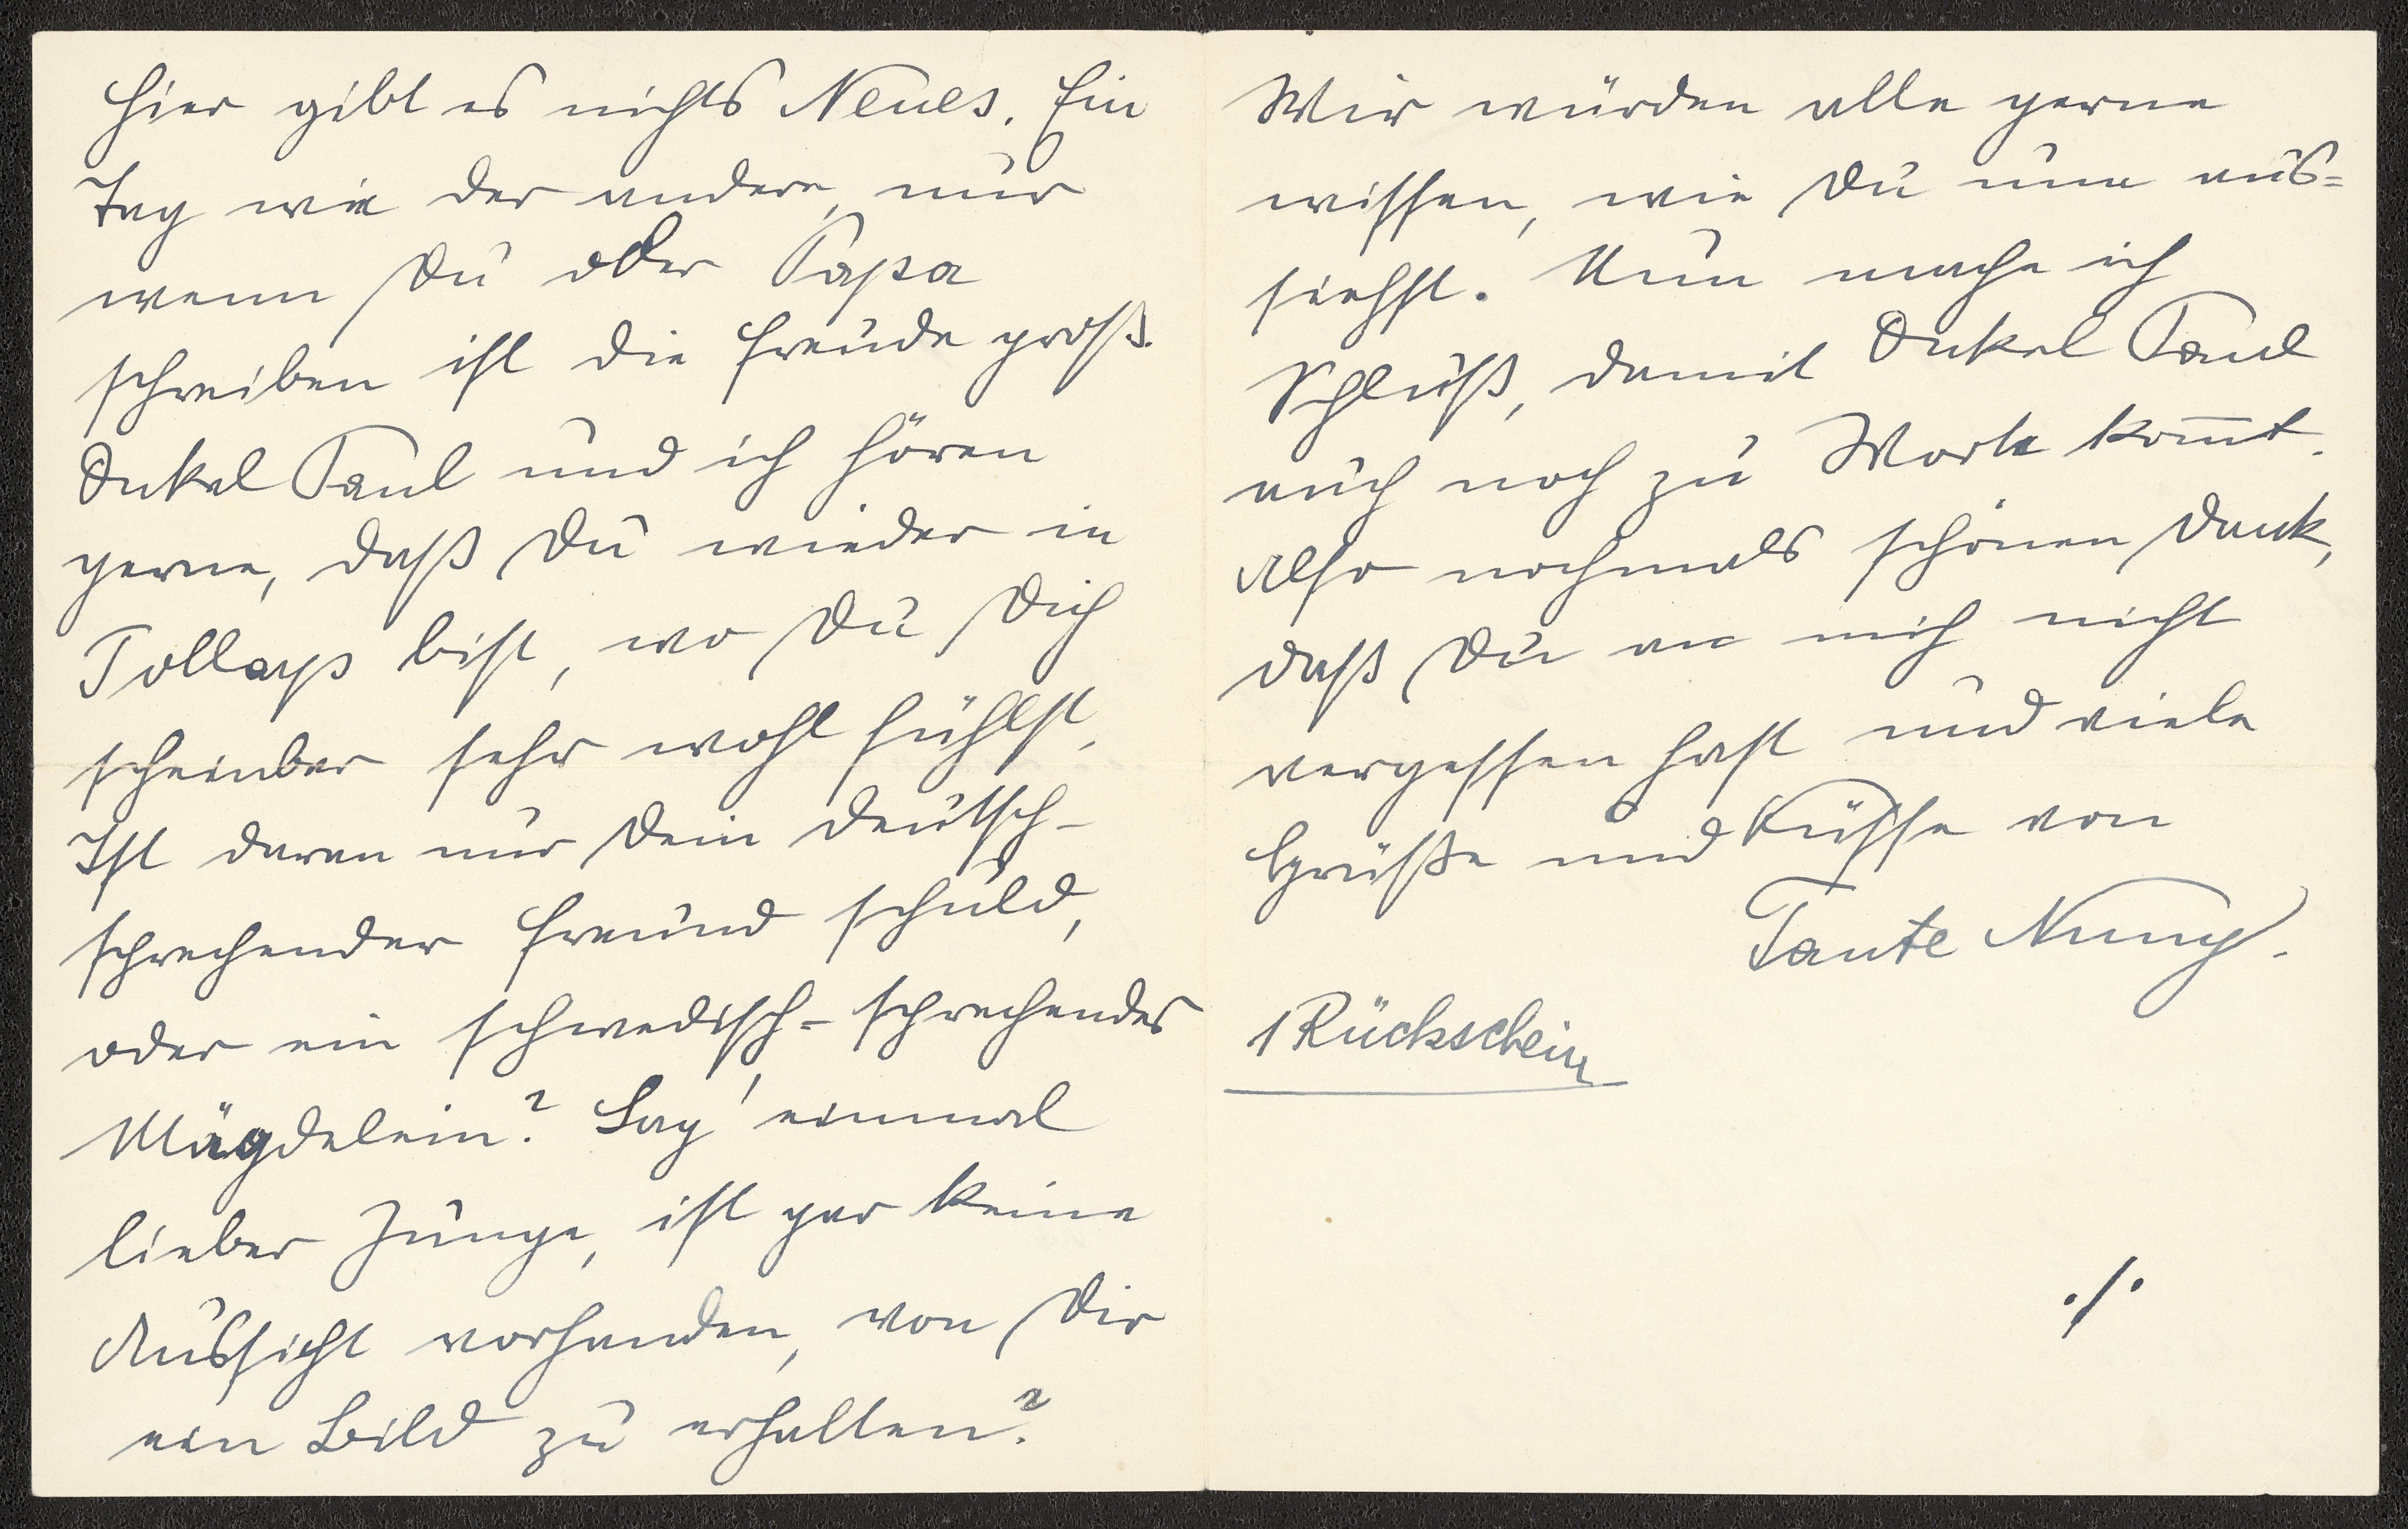 Hier gibt es nichts Neues. Ein
Tag wie der andere, nur
wenn Du oder Papa
schreiben ist die Freude groß.
Onkel Paul und ich hören
gerne, daß Du wieder in
Tollarps bist, wo Du Dich
scheinbar sehr wohl fühlst.
Ist daran nur Dein deutsch-
sprechender Freund schuld,
oder ein schwedisch-sprechendes
Mägdelein? Sag' einmal
lieber Junge, ist gar keine
Aussicht vorhanden, von Dir
ein Bild zu erhalten?
Wir würden alle gerne
wissen, wie Du nun aus=
siehst. Nun mache ich
Schluß, damit Onkel Paul
auch noch zu Worte kommt.
Also nochmals schönen Dank,
daß Du an mich nicht
vergessen hast und viele
Grüße und Küsse von
Tante Nuny.
1 Rückschein
./.